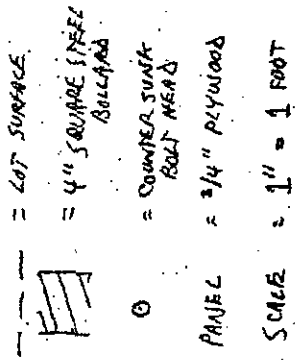 = LOT SURFACE
= 4" SQUARE STEEL
BOLLARD
= COUNTER SUNK
BOLT HEAD
PANEL = 3/4" PLYWOOD
SCALE = 1" = 1 FOOT